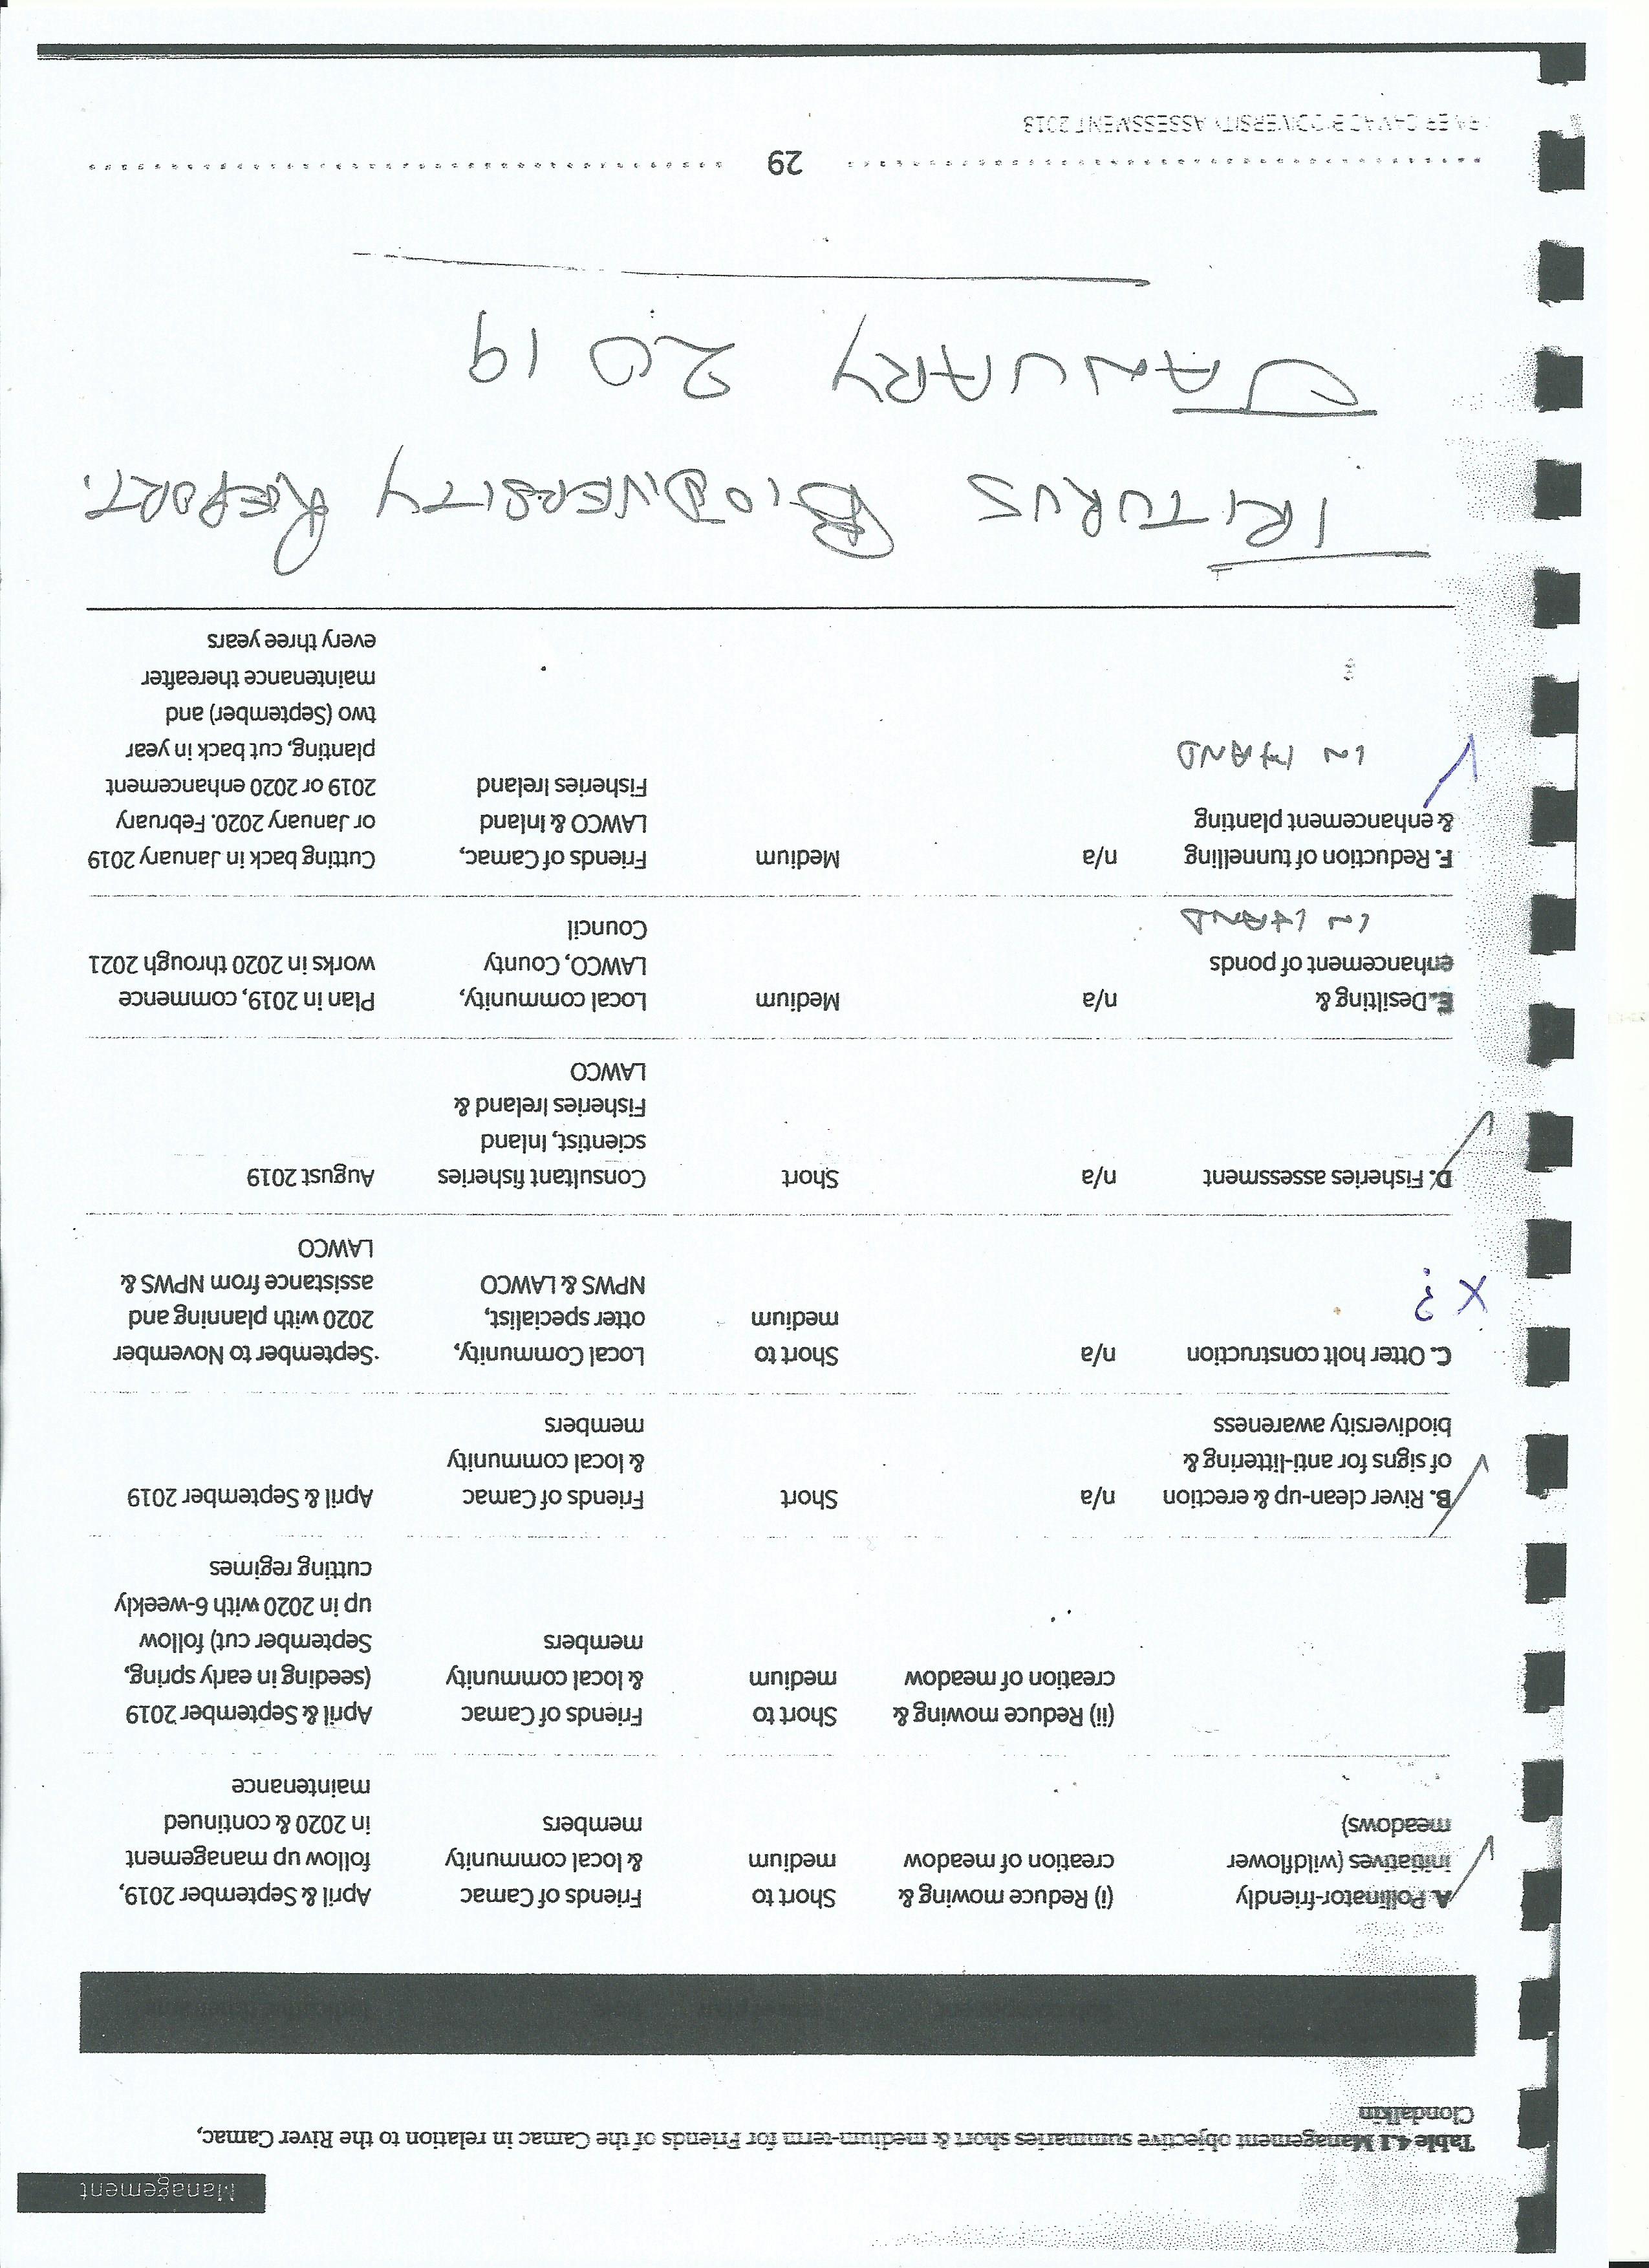 Management
Table 4.1 Management objective summaries short & medium-term for Friends of the Camac in relation to the River Camac,
Clondalkin
A. Pollinator-friendly (i) Reduce mowing & Short to Friends of Camac April & September 2019,
initiatives (wildflower creation of meadow medium & local community follow up management
meadows) members in 2020 & continued
maintenance
(ii) Reduce mowing & Short to Friends of Camac April & September 2019
creation of meadow medium & local community (seeding in early spring,
members September cut) follow
up in 2020 with 6-weekly
cutting regimes
B. River clean-up & erection n/a Short Friends of Camac April & September 2019
of signs for anti-littering & & local community
biodiversity awareness members
C. Otter holt construction n/a Short to Local Community, September to November
X ? medium otter specialist, 2020 with planning and
NPWS & LAWCO assistance from NPWS &
LAWCO
D. Fisheries assessment n/a Short Consultant fisheries August 2019
scientist, Inland
Fisheries Ireland &
LAWCO
E. Desilting & n/a Medium Local community, Plan in 2019, commence
enhancement of ponds LAWCO, County works in 2020 through 2021
IN HAND Council
F. Reduction of tunnelling n/a Medium Friends of Camac, Cutting back in January 2019
& enhancement planting LAWCO & Inland or January 2020. February
IN HAND Fisheries Ireland 2019 or 2020 enhancement
planting, cut back in year
two (September) and
maintenance thereafter
every three years
TRITURUS BIODIVERSITY REPORT.
JANUARY 2019
29
RIVER CAMAC BIODIVERSITY ASSESSMENT 2018